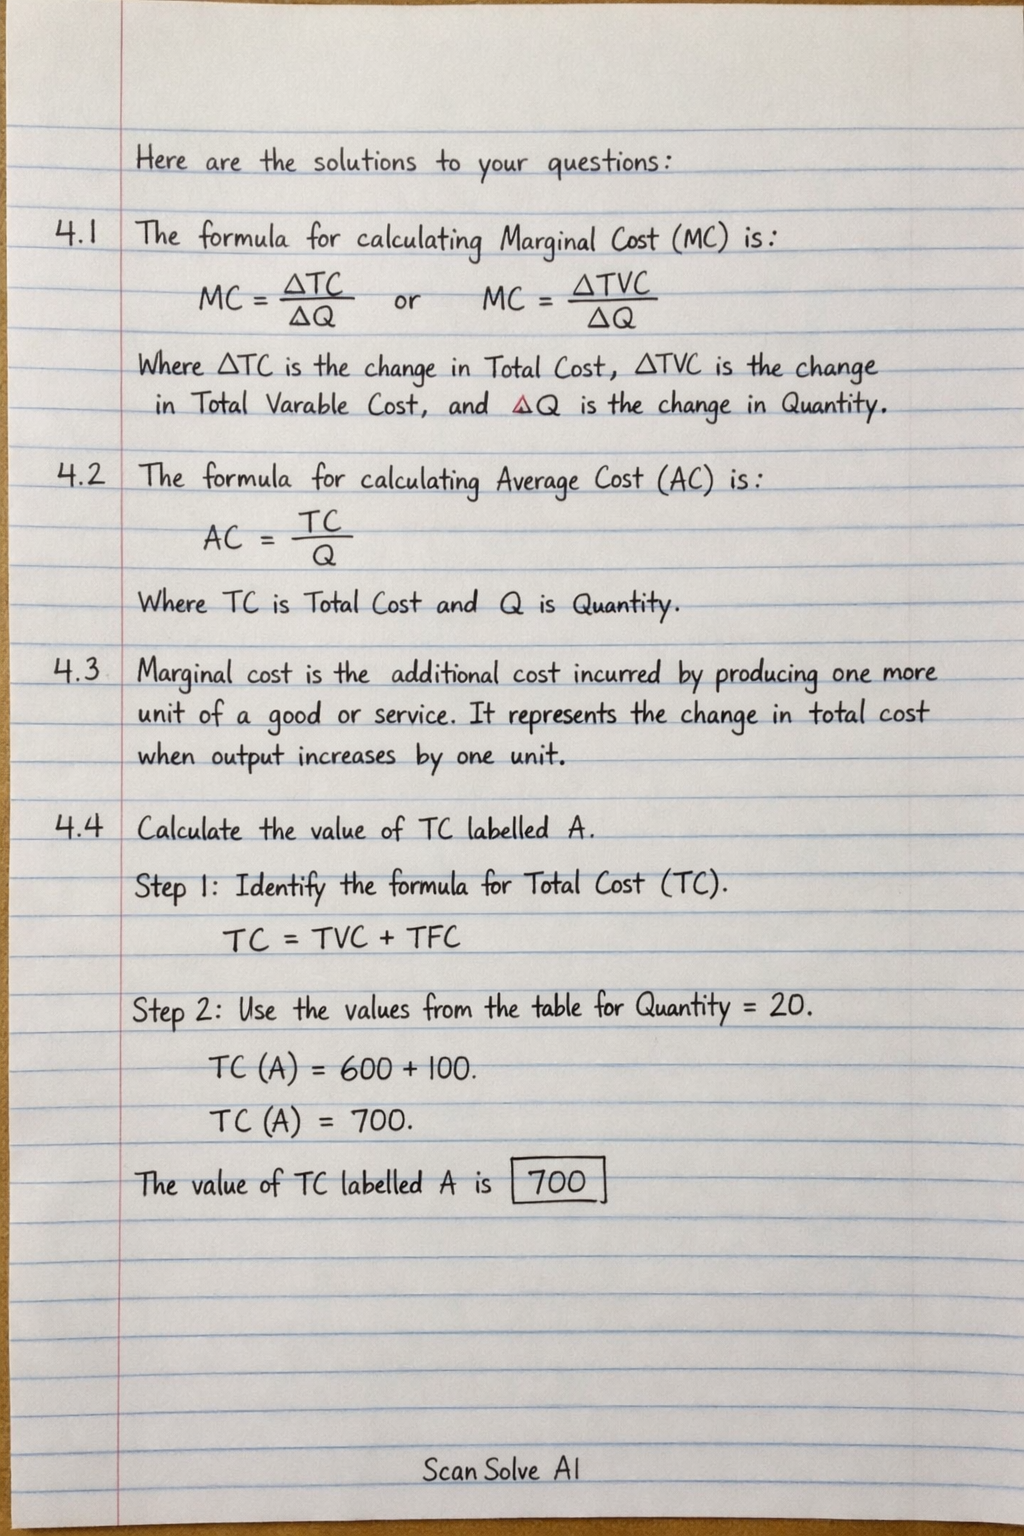 Here are the solutions to your questions:
4.1 The formula for calculating Marginal Cost (MC) is:
MC = ΔTC/ΔQ or MC = ΔTVC/ΔQ
Where ΔTC is the change in Total Cost, ΔTVC is the change
in Total Varable Cost, and ΔQ is the change in Quantity.
4.2 The formula for calculating Average Cost (AC) is:
AC = TC/Q
Where TC is Total Cost and Q is Quantity.
4.3 Marginal cost is the additional cost incurred by producing one more
unit of a good or service. It represents the change in total cost
when output increases by one unit.
4.4 Calculate the value of TC labelled A.
Step 1: Identify the formula for Total Cost (TC).
TC = TVC + TFC
Step 2: Use the values from the table for Quantity = 20.
TC (A) = 600 + 100.
TC (A) = 700.
The value of TC labelled A is 700
Scan Solve AI